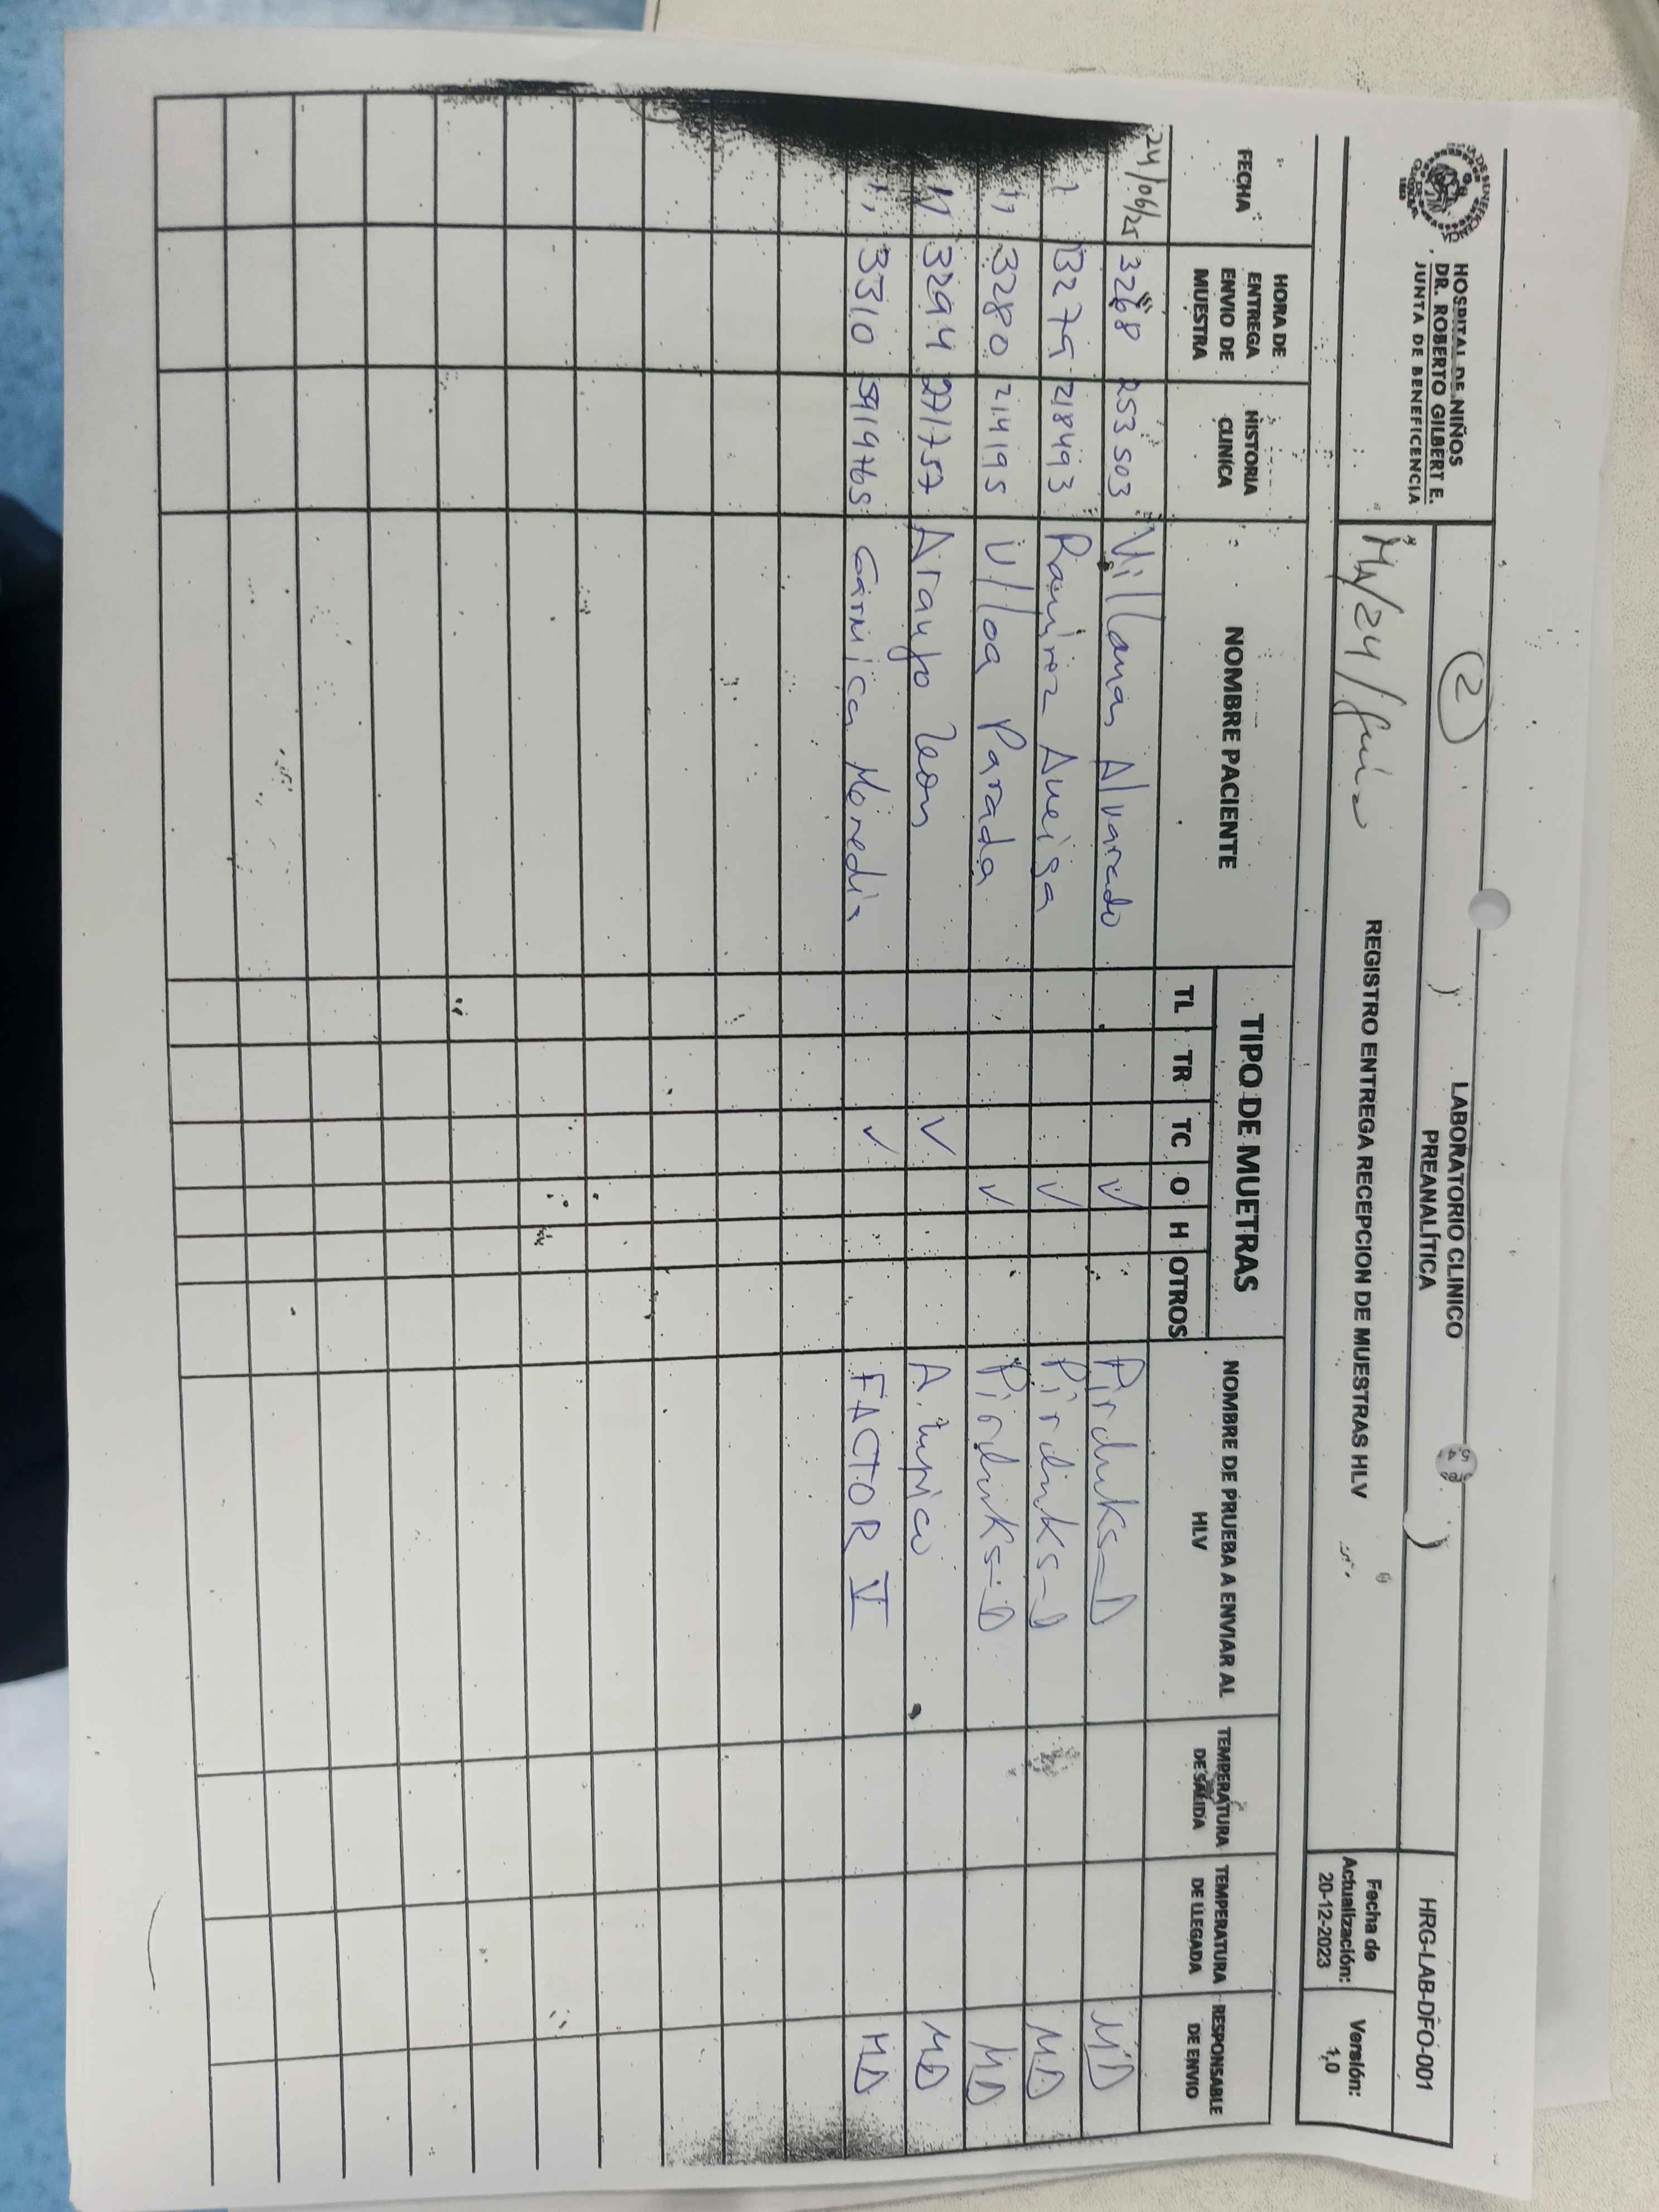 HOSPITAL DE NIÑOS
DR. ROBERTO GILBERT E.
JUNTA DE BENEFICENCIA
2
LABORATORIO CLINICO
PREANALÍTICA
HRG-LAB-DFO-001
24/
REGISTRO ENTREGA RECEPCION DE MUESTRAS HLV
Fecha de
Actualización:
20-12-2023
Versión:
1,0
FECHA
HORA DE
ENTREGA
ENVIO DE
MUESTRA
HISTORIA
CLINÍCA
NOMBRE PACIENTE
TIPO DE MUETRAS
TL TR TC O H OTROS
NOMBRE DE PRUEBA A ENVIAR AL
HLV
TEMPERATURA
DE SALIDA
TEMPERATURA
DE LLEGADA
RESPONSABLE
DE ENVIO
24/06/25 3268 253503 Villamar Alvarado ✓ MD
3279 218493 Ramirez ✓ MD
11 3280 214195 Ulloa Parada ✓ MD
11 3294 271757 Araujo Leon ✓ MD
11 3310 591976 Garnica ✓ FACTOR V MD